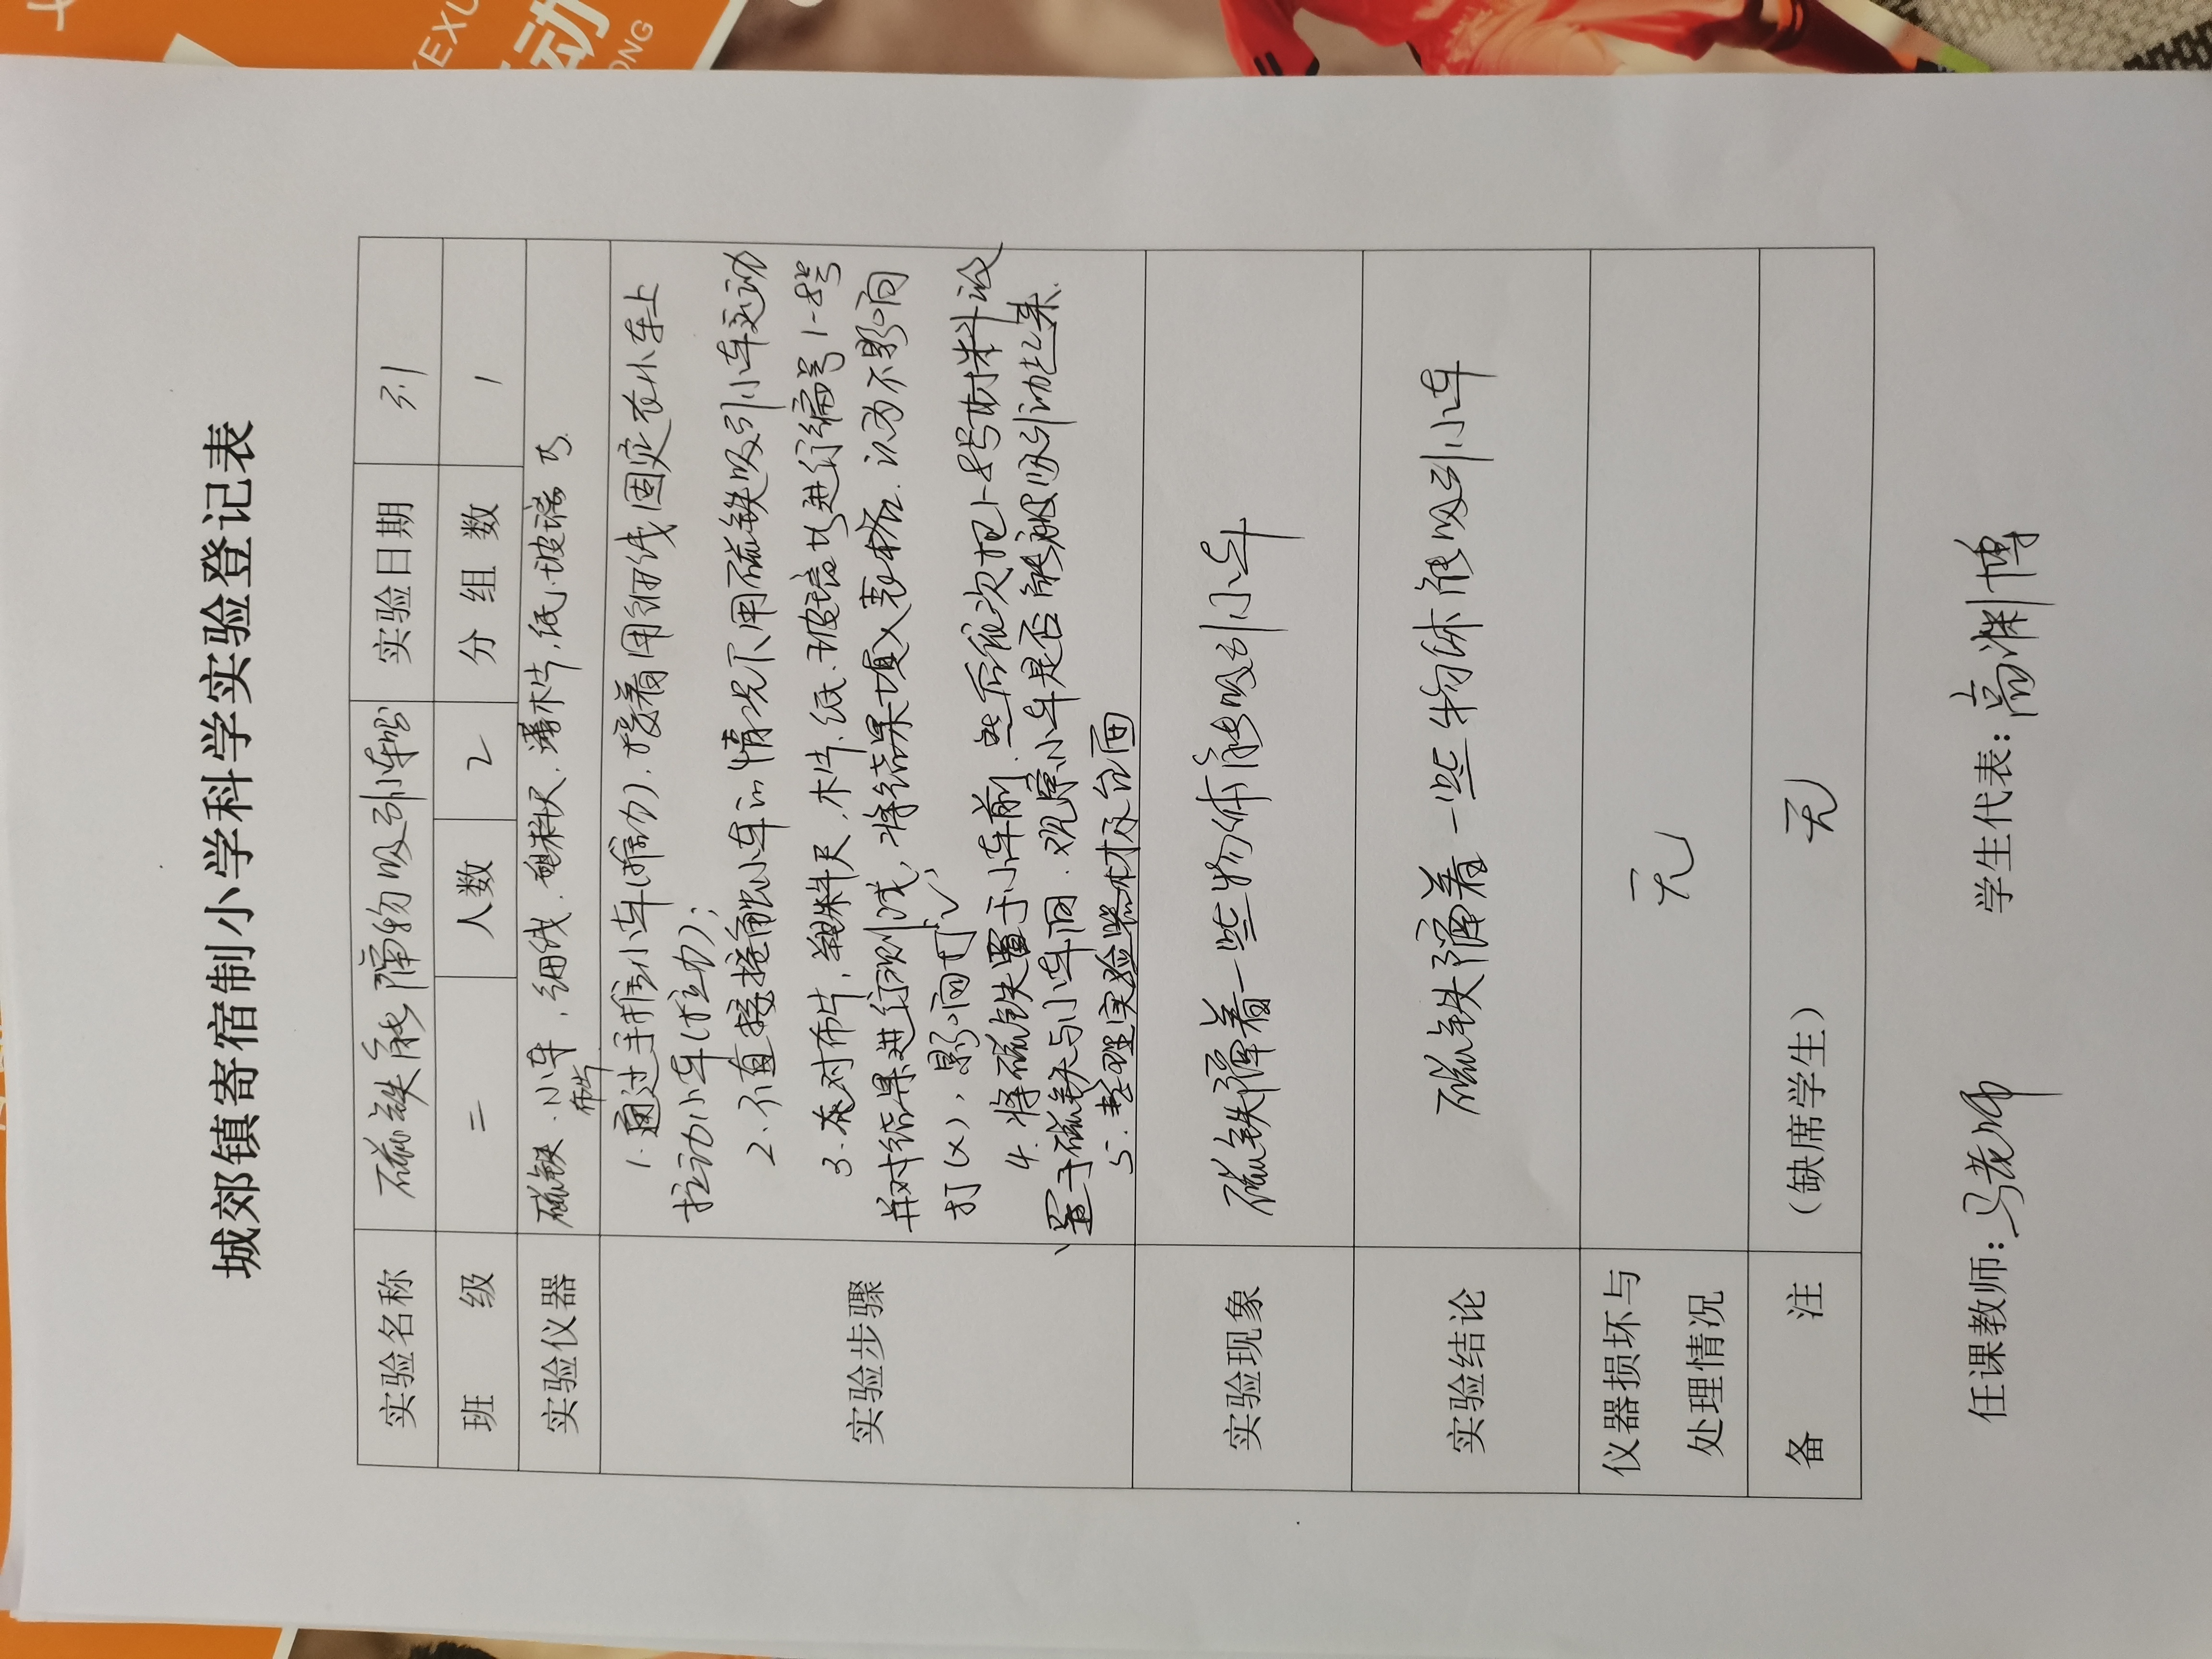 动
城郊镇寄宿制小学科学实验登记表
实验名称 磁铁能隔物吸引小车吗 实验日期 3.1
班 级 二 人数 2 分组数 1
实验仪器 磁铁、小车、细线、塑料尺、薄木片、纸、玻璃
布片
实验步骤
1.通过手推小车(推力),接着用细线固定在小车上
拉动小车(拉力);
2.不直接接触小车的情况下用磁铁吸引小车运动
3.对布片,塑料尺,木片、纸、玻璃进行编号1-8号
并对结果进行预测,将结果填入表格.认为不影响
打(×),影响打✓
4.将磁铁置于小车前.然后依次把1-8号材料设
置于磁铁与小车间.观察小车是否能被吸引动起来.
5.整理实验器材及台面
实验现象 磁铁隔着一些物体能吸引小车
实验结论 磁铁隔着一些物体能吸引小车
仪器损坏与
处理情况 无
备 注 (缺席学生) 无
任课教师:马老师 学生代表:高渊博